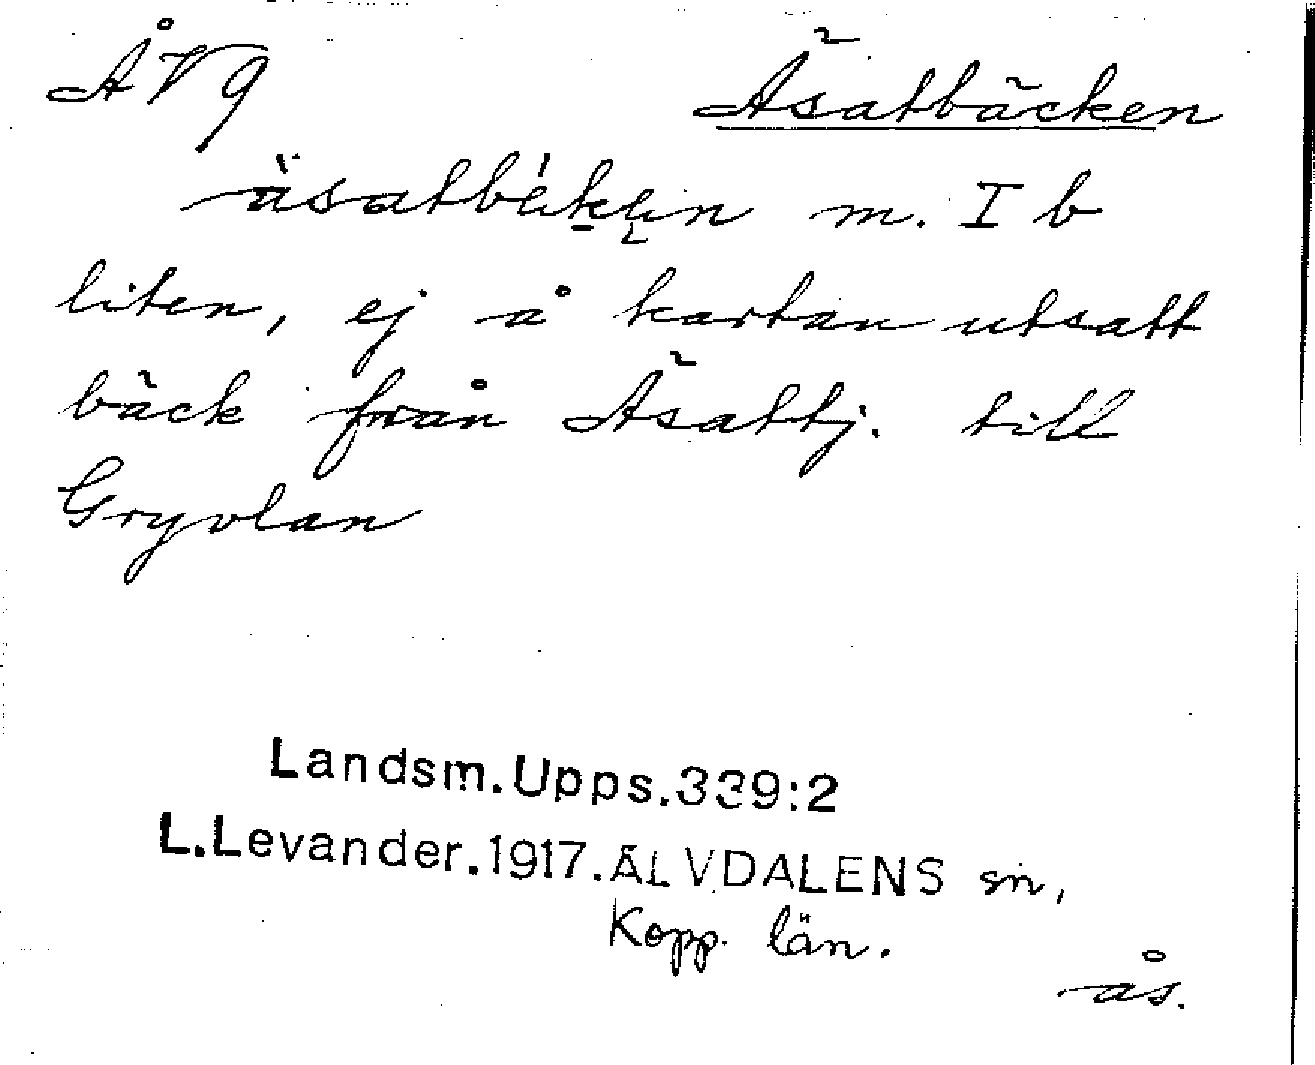 ÅV9 Äsatbäcken
äsatbäkįn m. I b
liten, ej å kartan utsatt
bäck från Äsattj. till
Gryvlan
Landsm.Upps.339:2
L.Levander.1917.ÄLVDALENS sn,
Kopp. län.
ås.